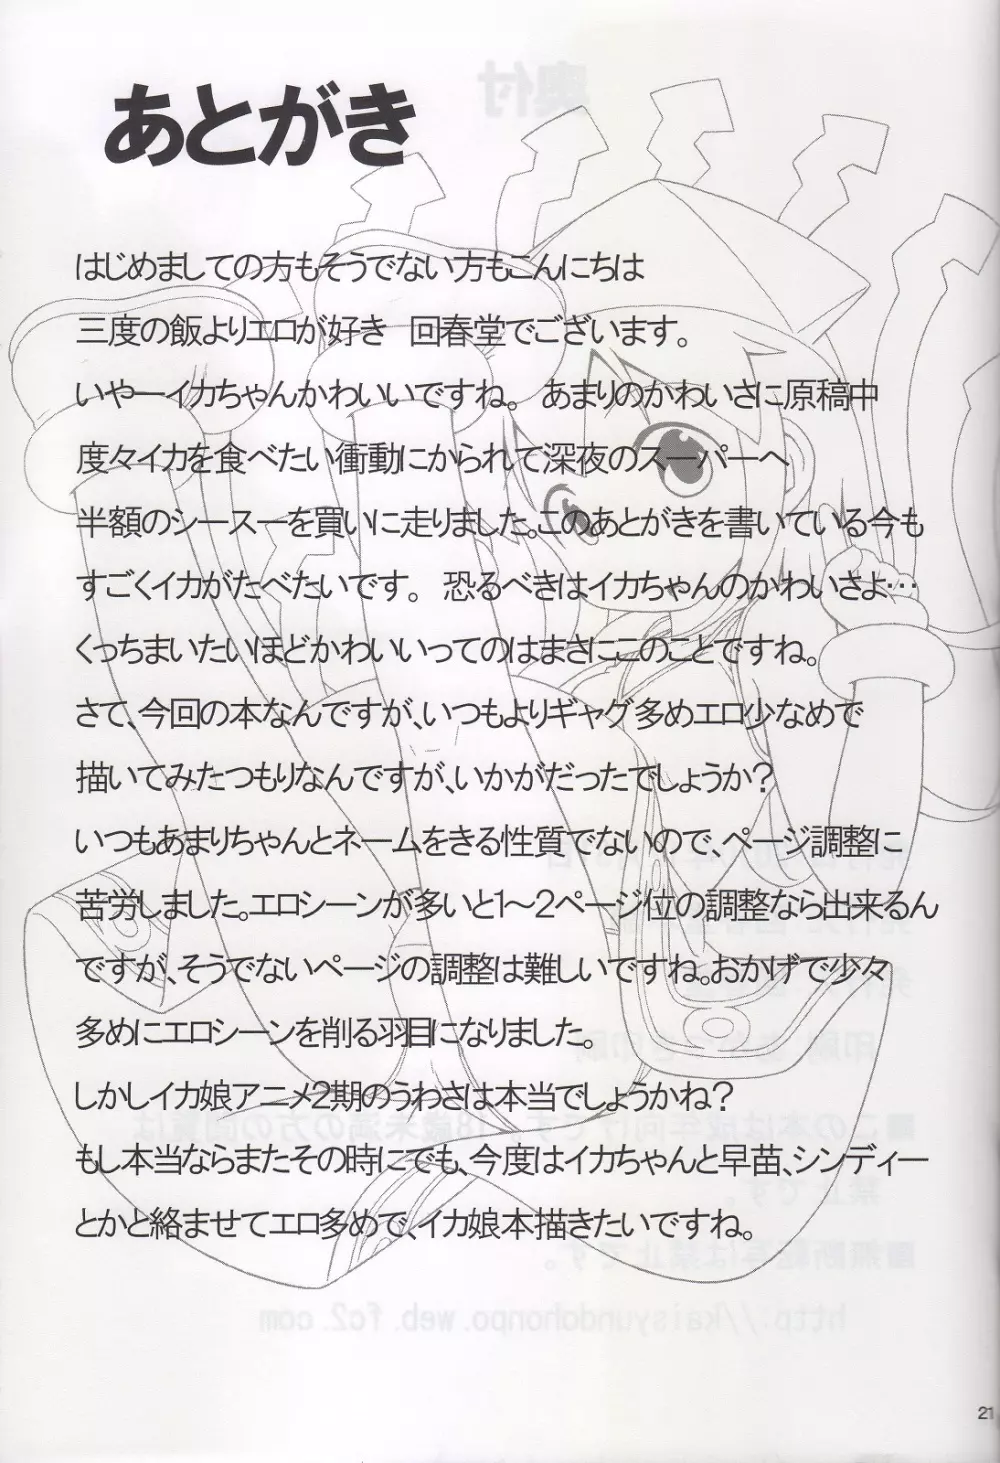 あとがき
はじめましての方もそうでない方もこんにちは
三度の飯よりエロが好き　回春堂でございます。
いやーイカちゃんかわいいですね。　あまりのかわいさに原稿中
度々イカを食べたい衝動にかられて深夜のスーパーへ
半額のシースーを買いに走りました。このあとがきを書いている今も
すごくイカがたべたいです。　恐るべきはイカちゃんのかわいさよ…
くっちまいたいほどかわいいってのはまさにこのことですね。
さて、今回の本なんですが、いつもよりギャグ多めエロ少なめで
描いてみたつもりなんですが、いかがだったでしょうか？
いつもあまりちゃんとネームをきる性質でないので、ページ調整に
苦労しました。エロシーンが多いと1～2ページ位の調整なら出来るん
ですが、そうでないページの調整は難しいですね。おかげで少々
多めにエロシーンを削る羽目になりました。
しかしイカ娘アニメ2期のうわさは本当でしょうかね？
もし本当ならまたその時にでも、今度はイカちゃんと早苗、シンディー
とかと絡ませてエロ多めで、イカ娘本描きたいですね。
21